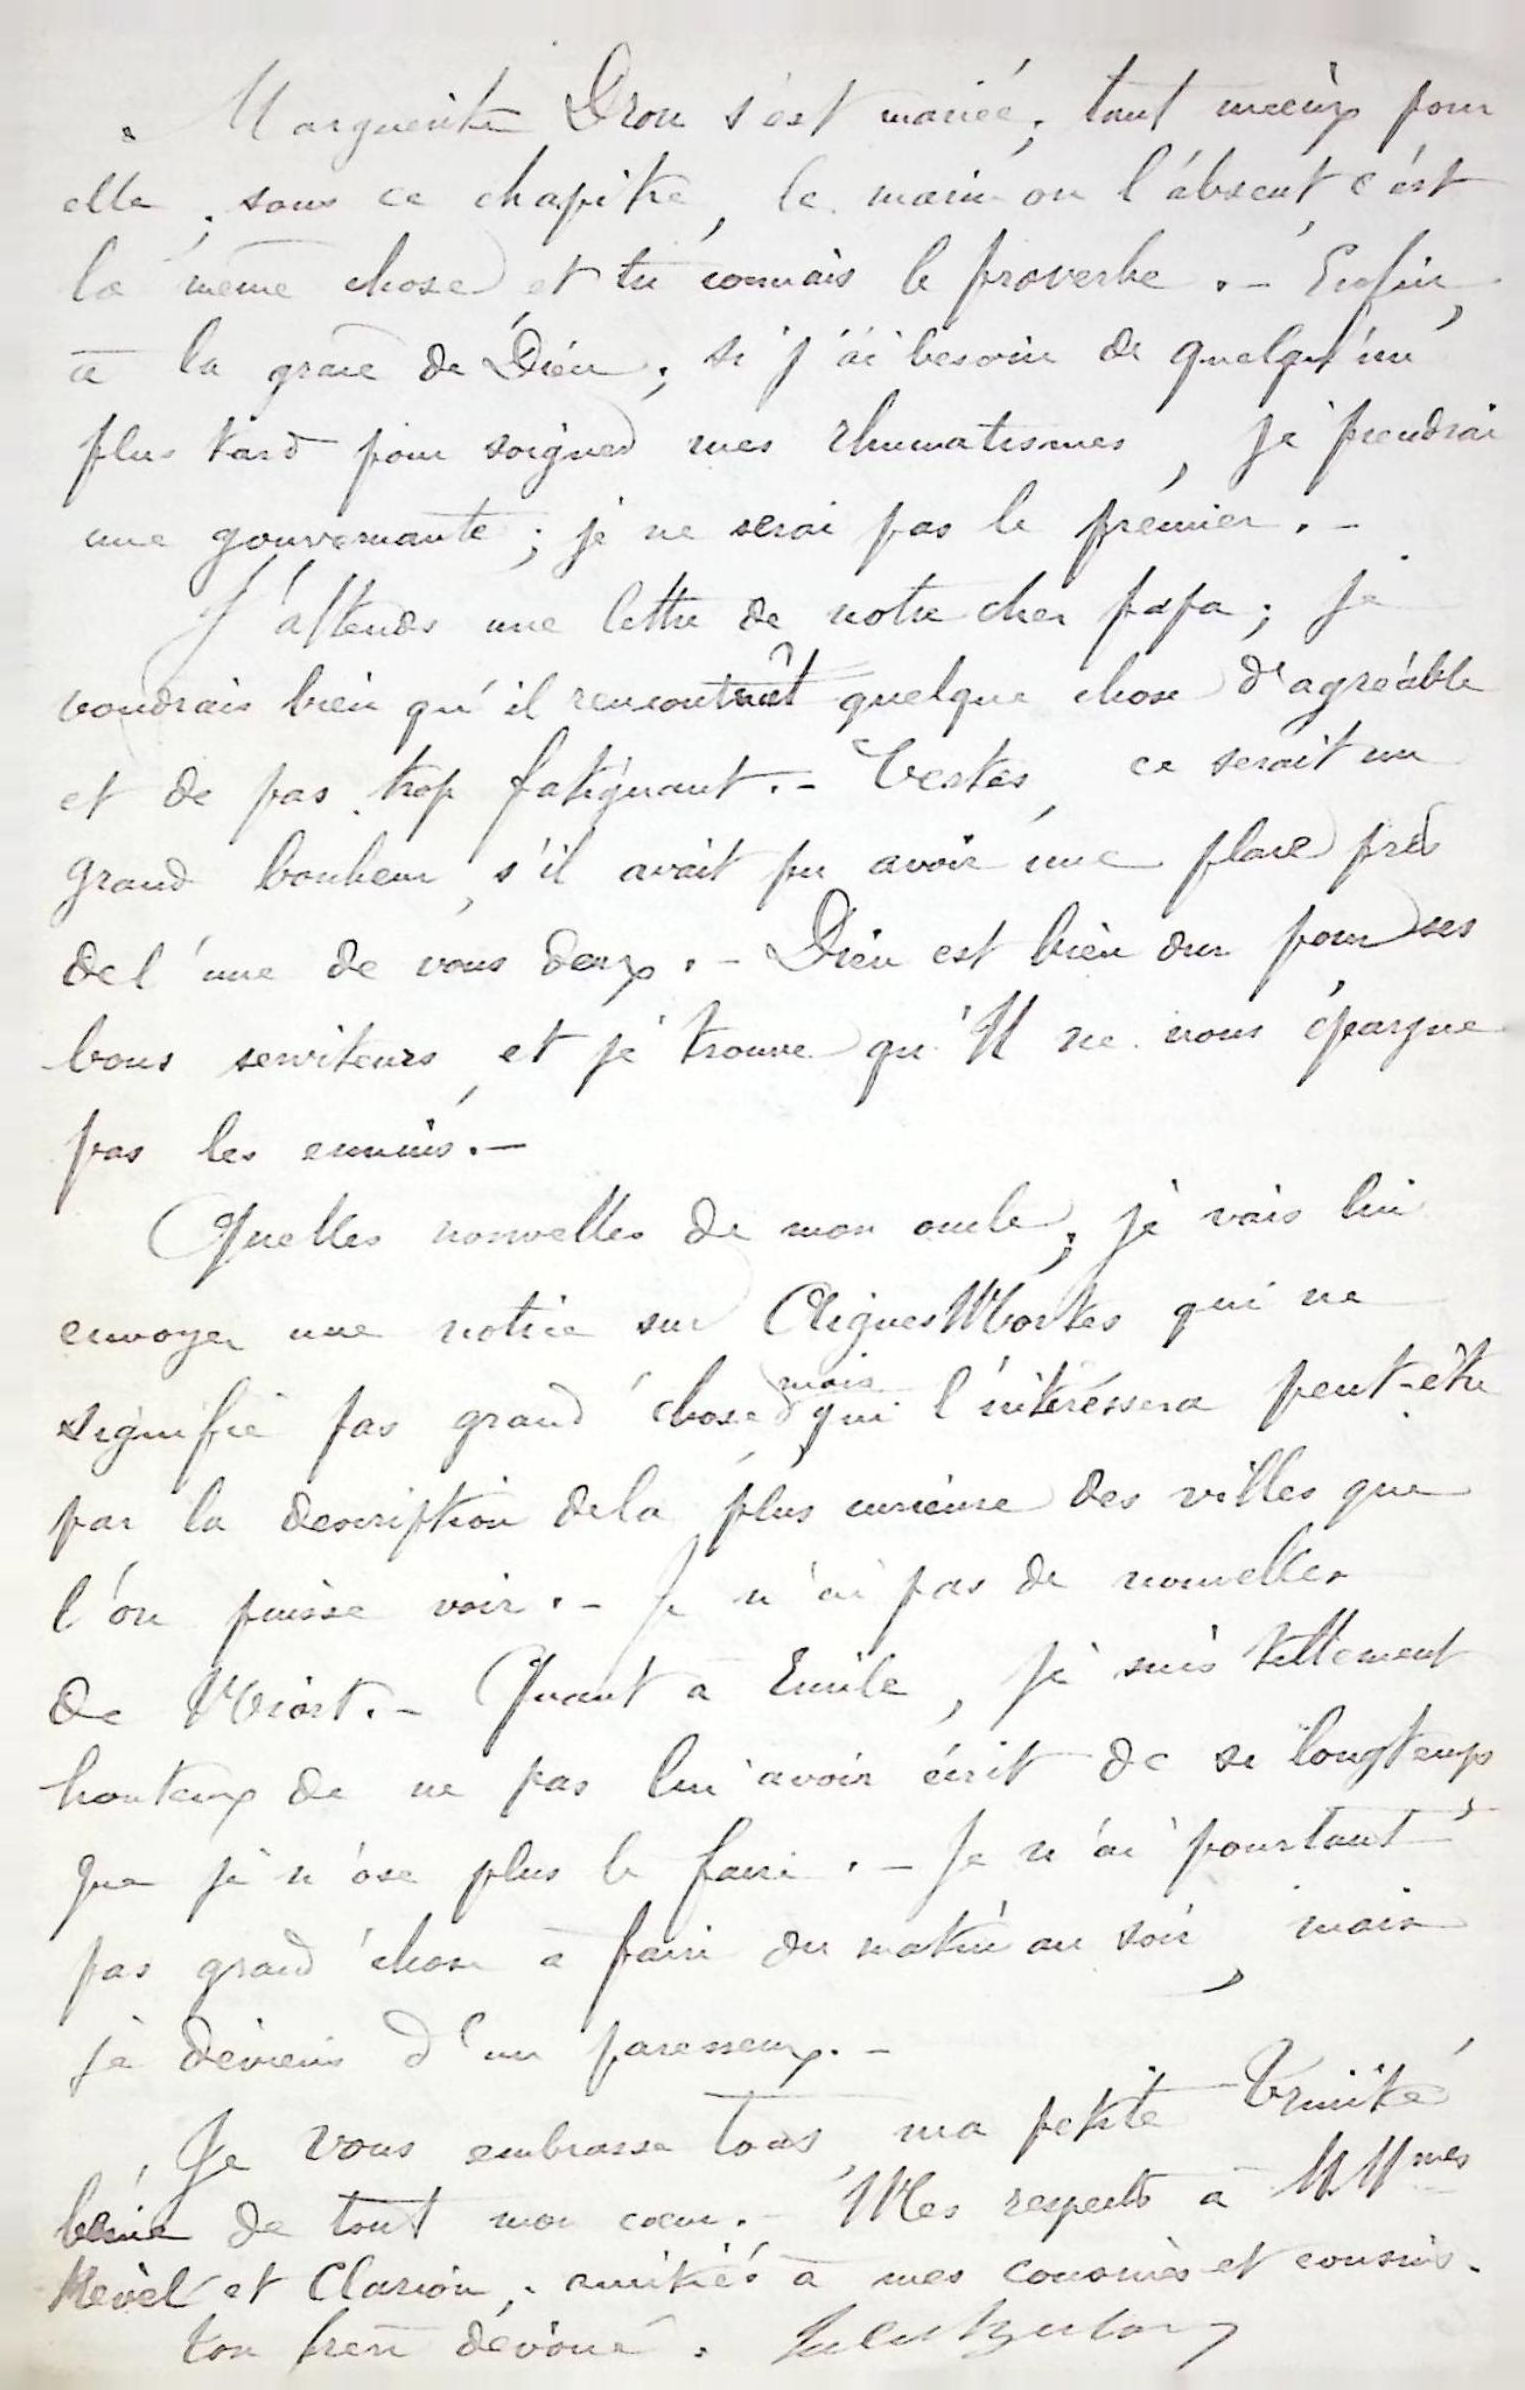 Marguerite Dron s'est mariée ; tant mieux pour
elle ; sous ce chapitre, le mari ou l'absent, c'est
la même chose et tu connais le proverbe. - Enfin,
à la grâce de Dieu ; si j'ai besoin de quelqu'un
plus tard pour soigner mes rhumatismes, je prendrai
une gouvernante ; je ne serai pas le premier. -
J'attends une lettre de notre cher papa ; je
voudrais bien qu'il rencontrât quelque chose d'agréable
et de pas trop fatiguant. - Certes, ce serait un
grand bonheur, s'il avait pu avoir une place près
de l'une de vous deux. - Dieu est bien dur pour ses
bons serviteurs, et je trouve qu'Il ne nous épargne
pas les ennuis. -
Quelles nouvelles de mon oncle ; je vais lui
envoyer une notice sur Aigues Mortes qui ne
signifie pas grand'chose mais qui l'intéressera peut-être
par la description de la plus curieuse des villes que
l'on puisse voir. - Je n'ai pas de nouvelles
de Niort. - Quant à Emile, je suis tellement
honteux de ne pas lui avoir écrit de si longtemps,
que je n'ose plus le faire. - Je n'ai pourtant
pas grand'chose à faire du matin au soir, mais
je deviens d'un paresseux. -
Je vous embrasse tous, ma petite Trinité
bénie de tout mon coeur. - Mes respects à MMmes
et Clarion ; amitiés à mes cousines et cousins.
ton frère dévoué.